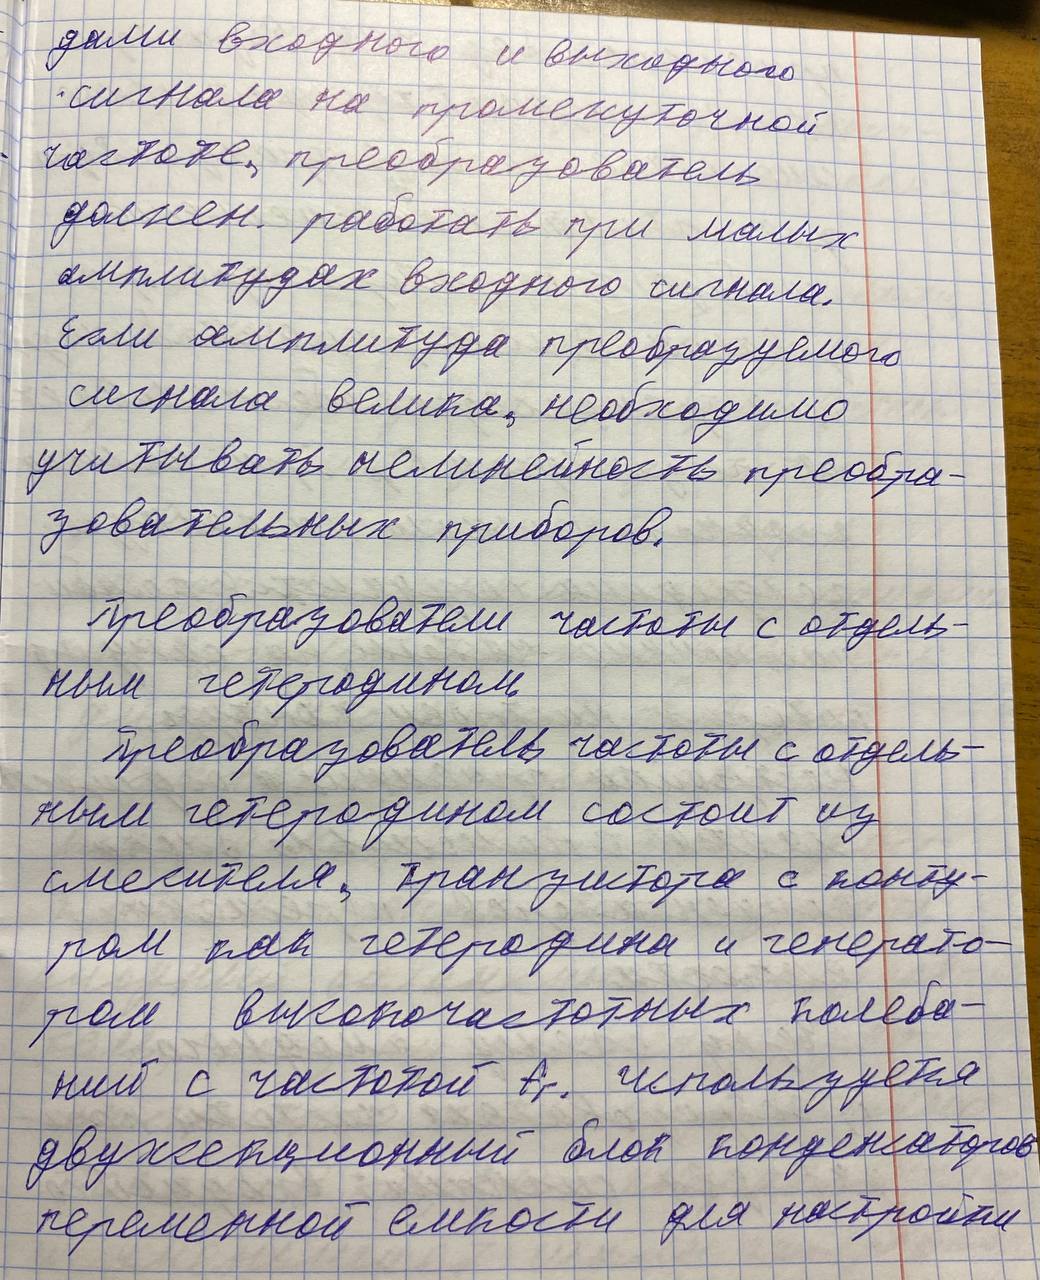 дами входного и выходного
сигнала на промежуточной
частоте, преобразователь
должен. работать при малых
амплитудах входного сигнала.
Если амплитуда преобразуемого
сигнала велика, необходимо
учитывать нелинейность преобра-
зовательных приборов.
Преобразователи частоты с отдель-
ным гетеродином
Преобразователь частоты с отдель-
ным гетеродином состоит из
смесителя, транзистора с конту-
ром как гетеродина и генерато-
ром высокочастотных колеба-
ний с частотой fг. Используется
двухсекционный блок конденсаторов
переменной емкости для настройки